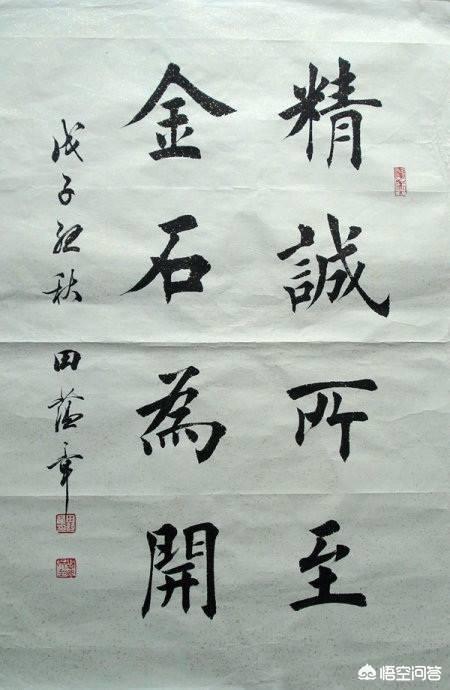 精誠所至
金石為開
戊子初秋 田蘊章
悟空问答